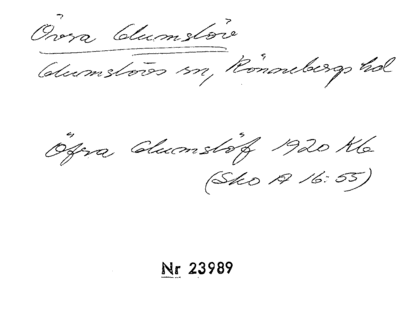 Övra Glumslöv
Glumslövs sn, Rönnebergs hd
Öfra Glumslöf 1920 Kb
(Sko A 16:55)
Nr 23989